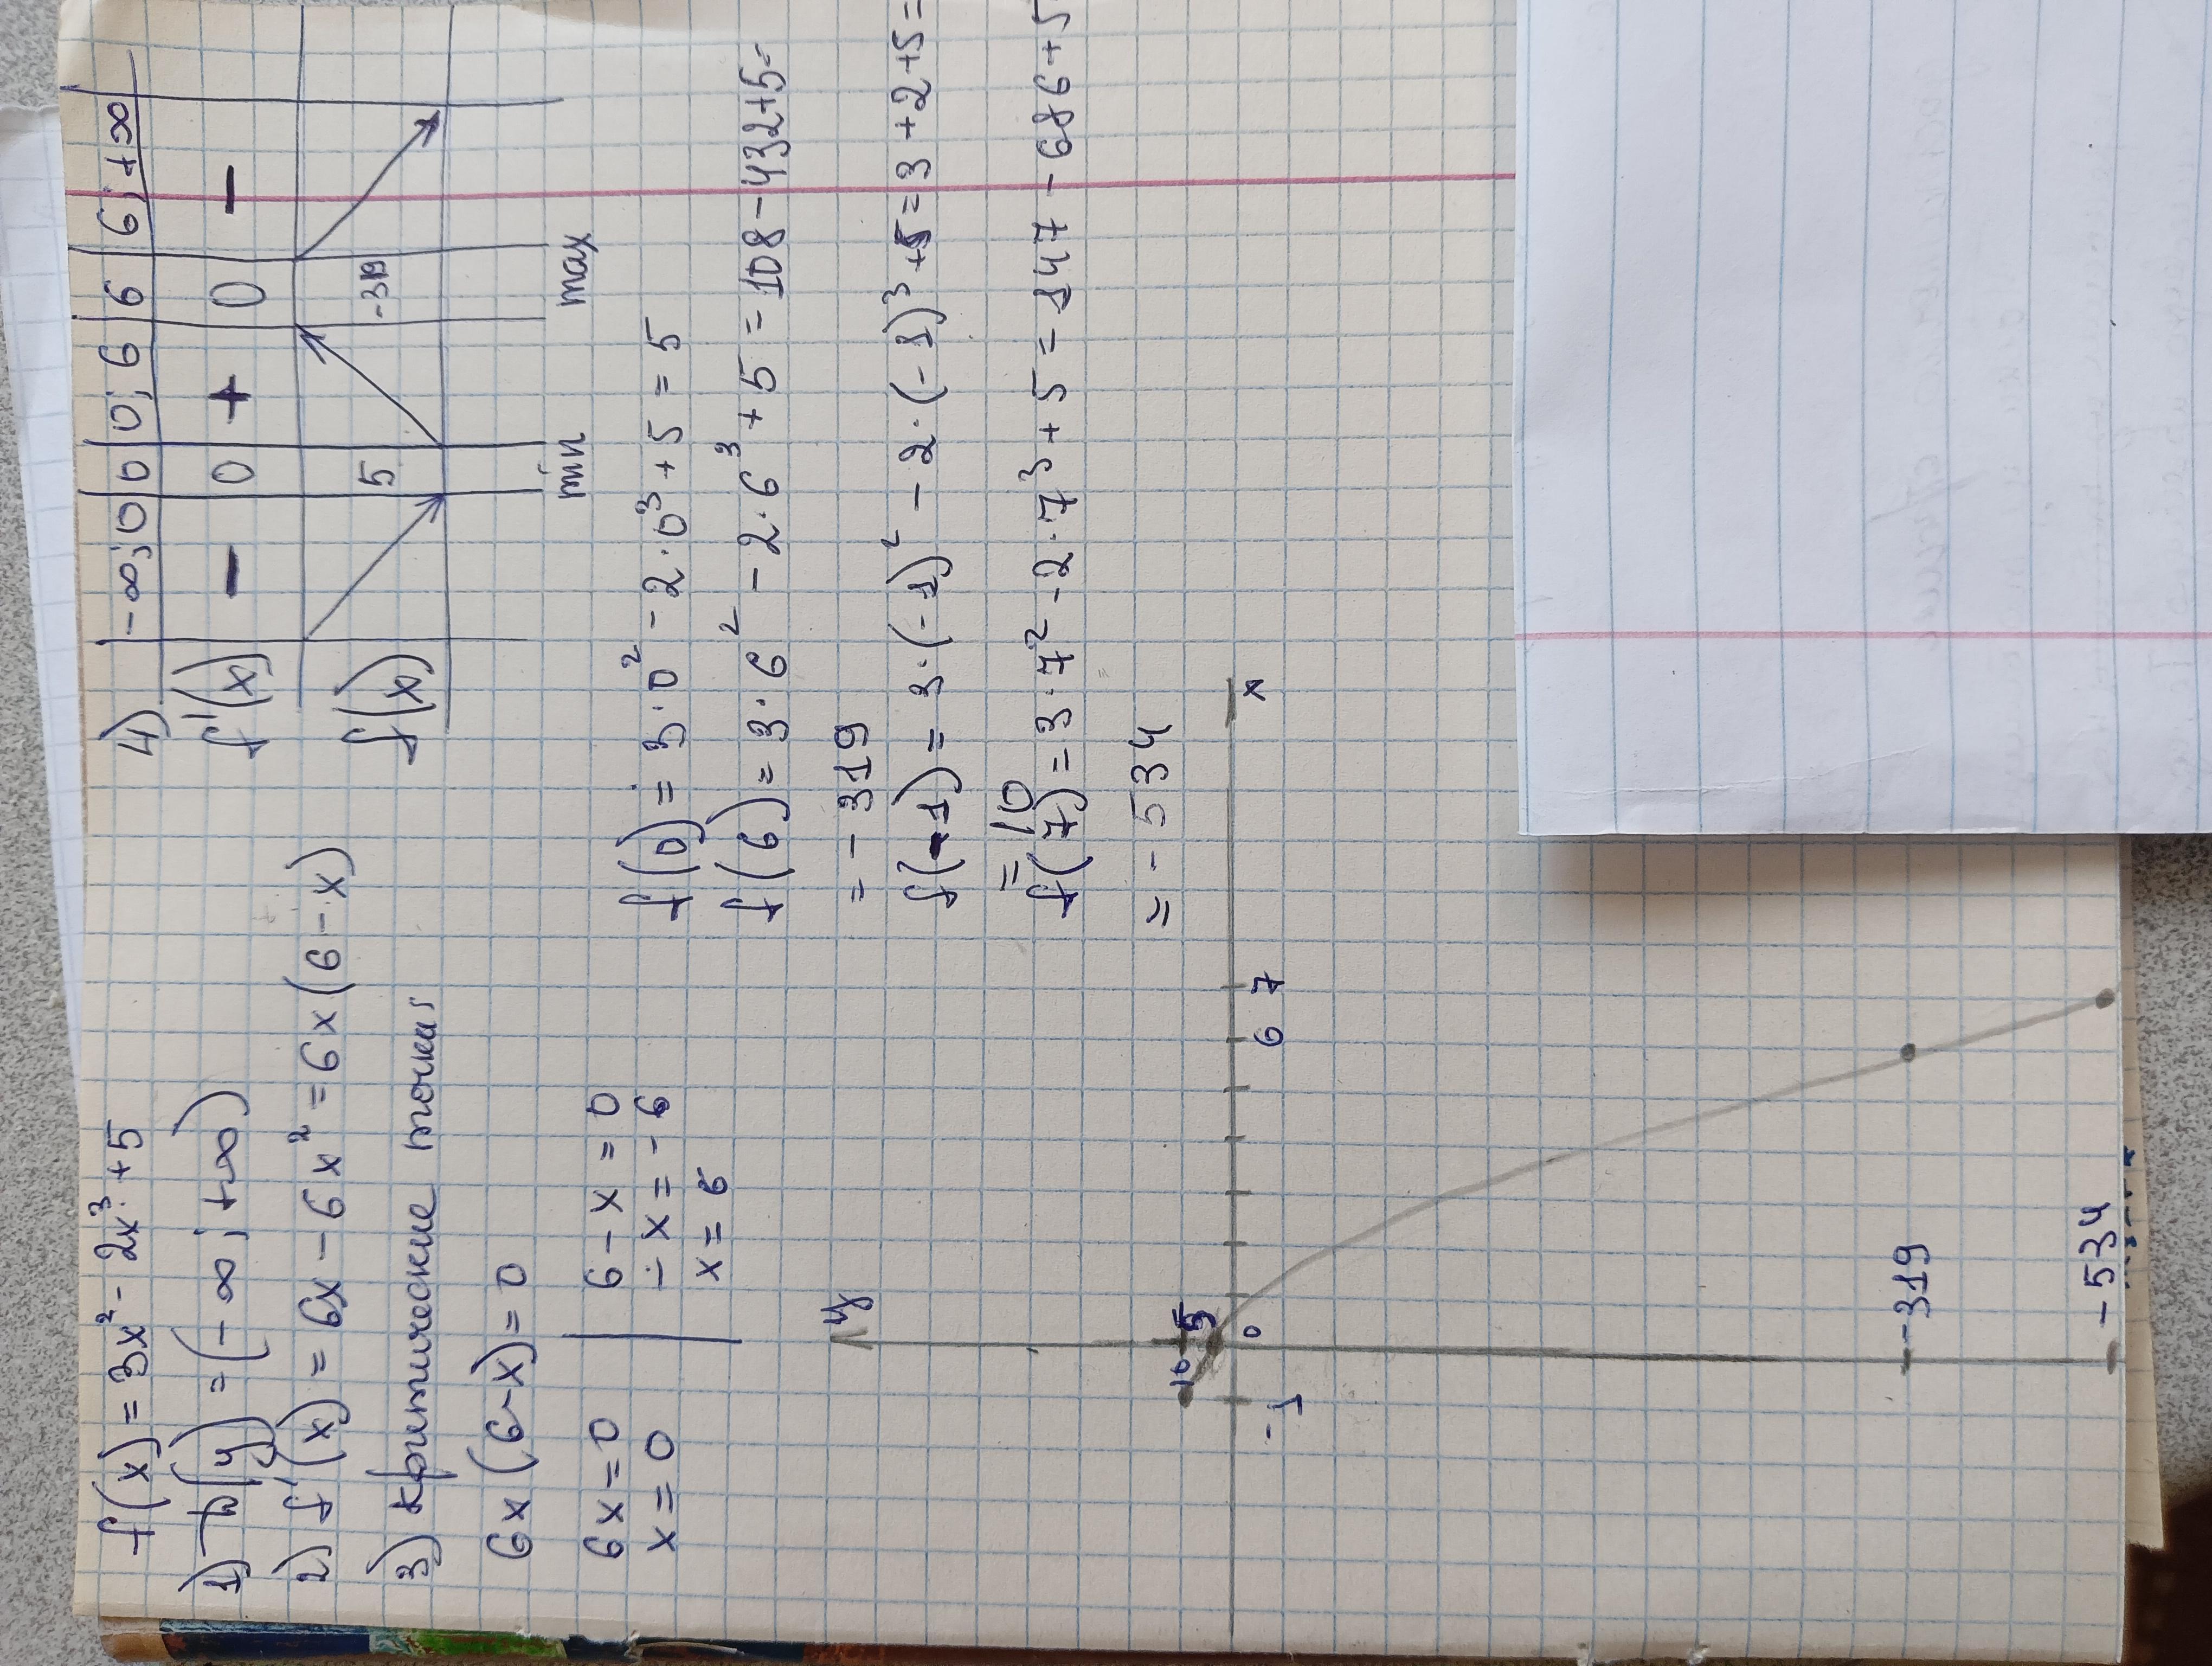 f(x) = 3x² - 2x³ + 5
1) D(y) = (-∞; +∞)
2) f'(x) = 6x - 6x² = 6x(6-x)
3) критические точки
6x(6-x) = 0
6x = 0 | 6 - x = 0
x = 0 | -x = -6
x = 6
4) -∞; 0 | 0 | 0; 6 | 6 | 6; +∞
f'(x) - 0 + 0 -
f(x) 5 -319
min max
f(0) = 3·0² - 2·0³ + 5 = 5
f(6) = 3·6² - 2·6³ + 5 = 108 - 432 + 5 =
= -319
f(-1) = 3·(-1)² - 2·(-1)³ + 5 = 3 + 2 + 5 =
= 10
f(7) = 3·7² - 2·7³ + 5 = 147 - 686 + 5
= -534
y
10 5
-1 0 6 7 x
-319
-534